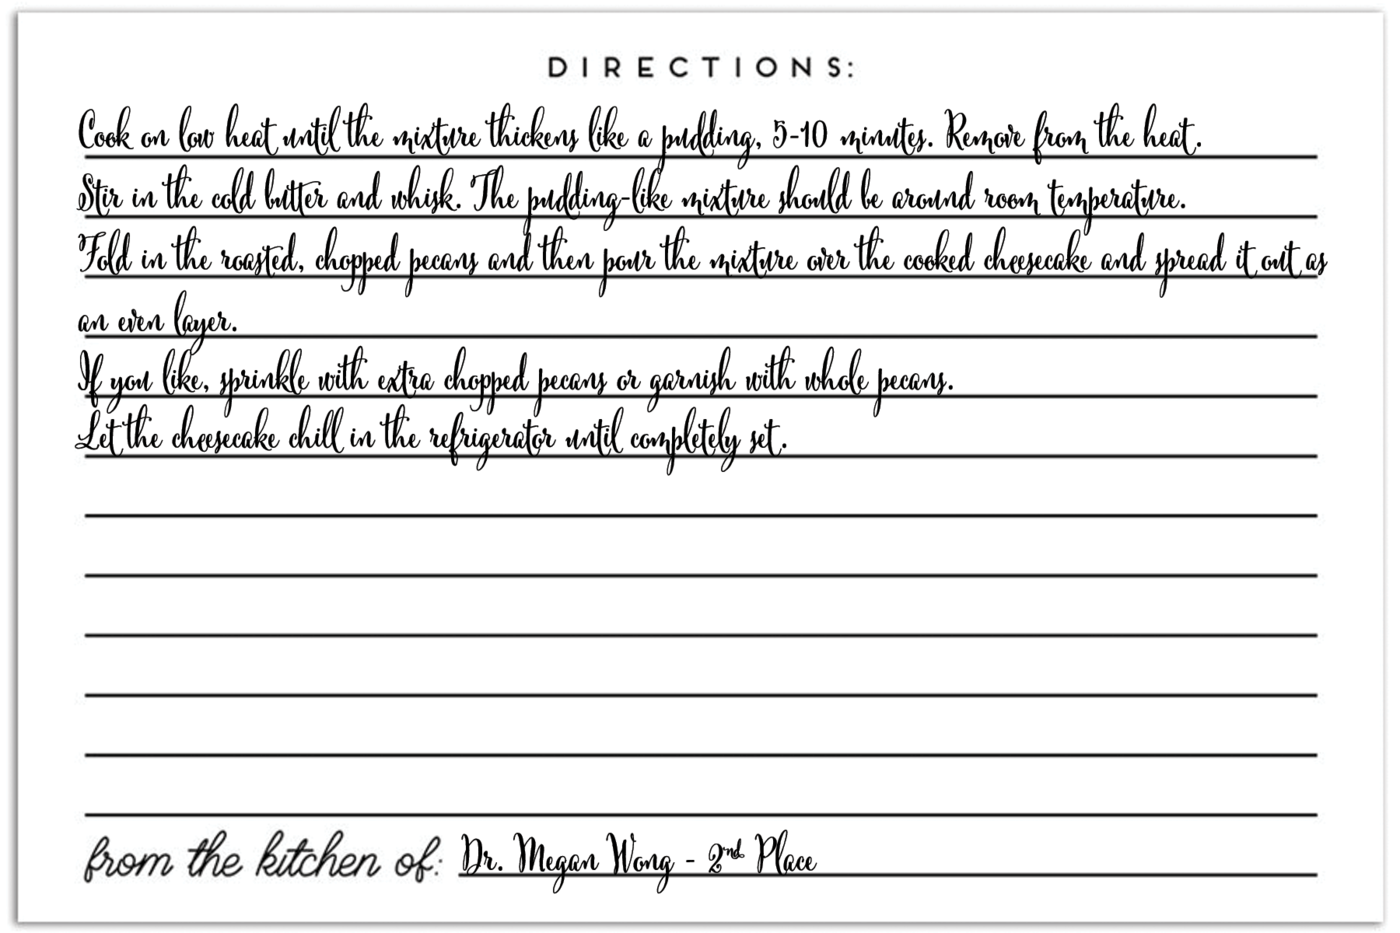 DIRECTIONS:
Cook on low heat until the mixture thickens like a pudding, 5-10 minutes. Remove from the heat.
Stir in the cold butter and whisk. The pudding-like mixture should be around room temperature.
Fold in the roasted, chopped pecans and then pour the mixture over the cooked cheesecake and spread it out as
an even layer.
If you like, sprinkle with extra chopped pecans or garnish with whole pecans.
Let the cheesecake chill in the refrigerator until completely set.
from the kitchen of: Dr. Megan Wong - 2nd Place